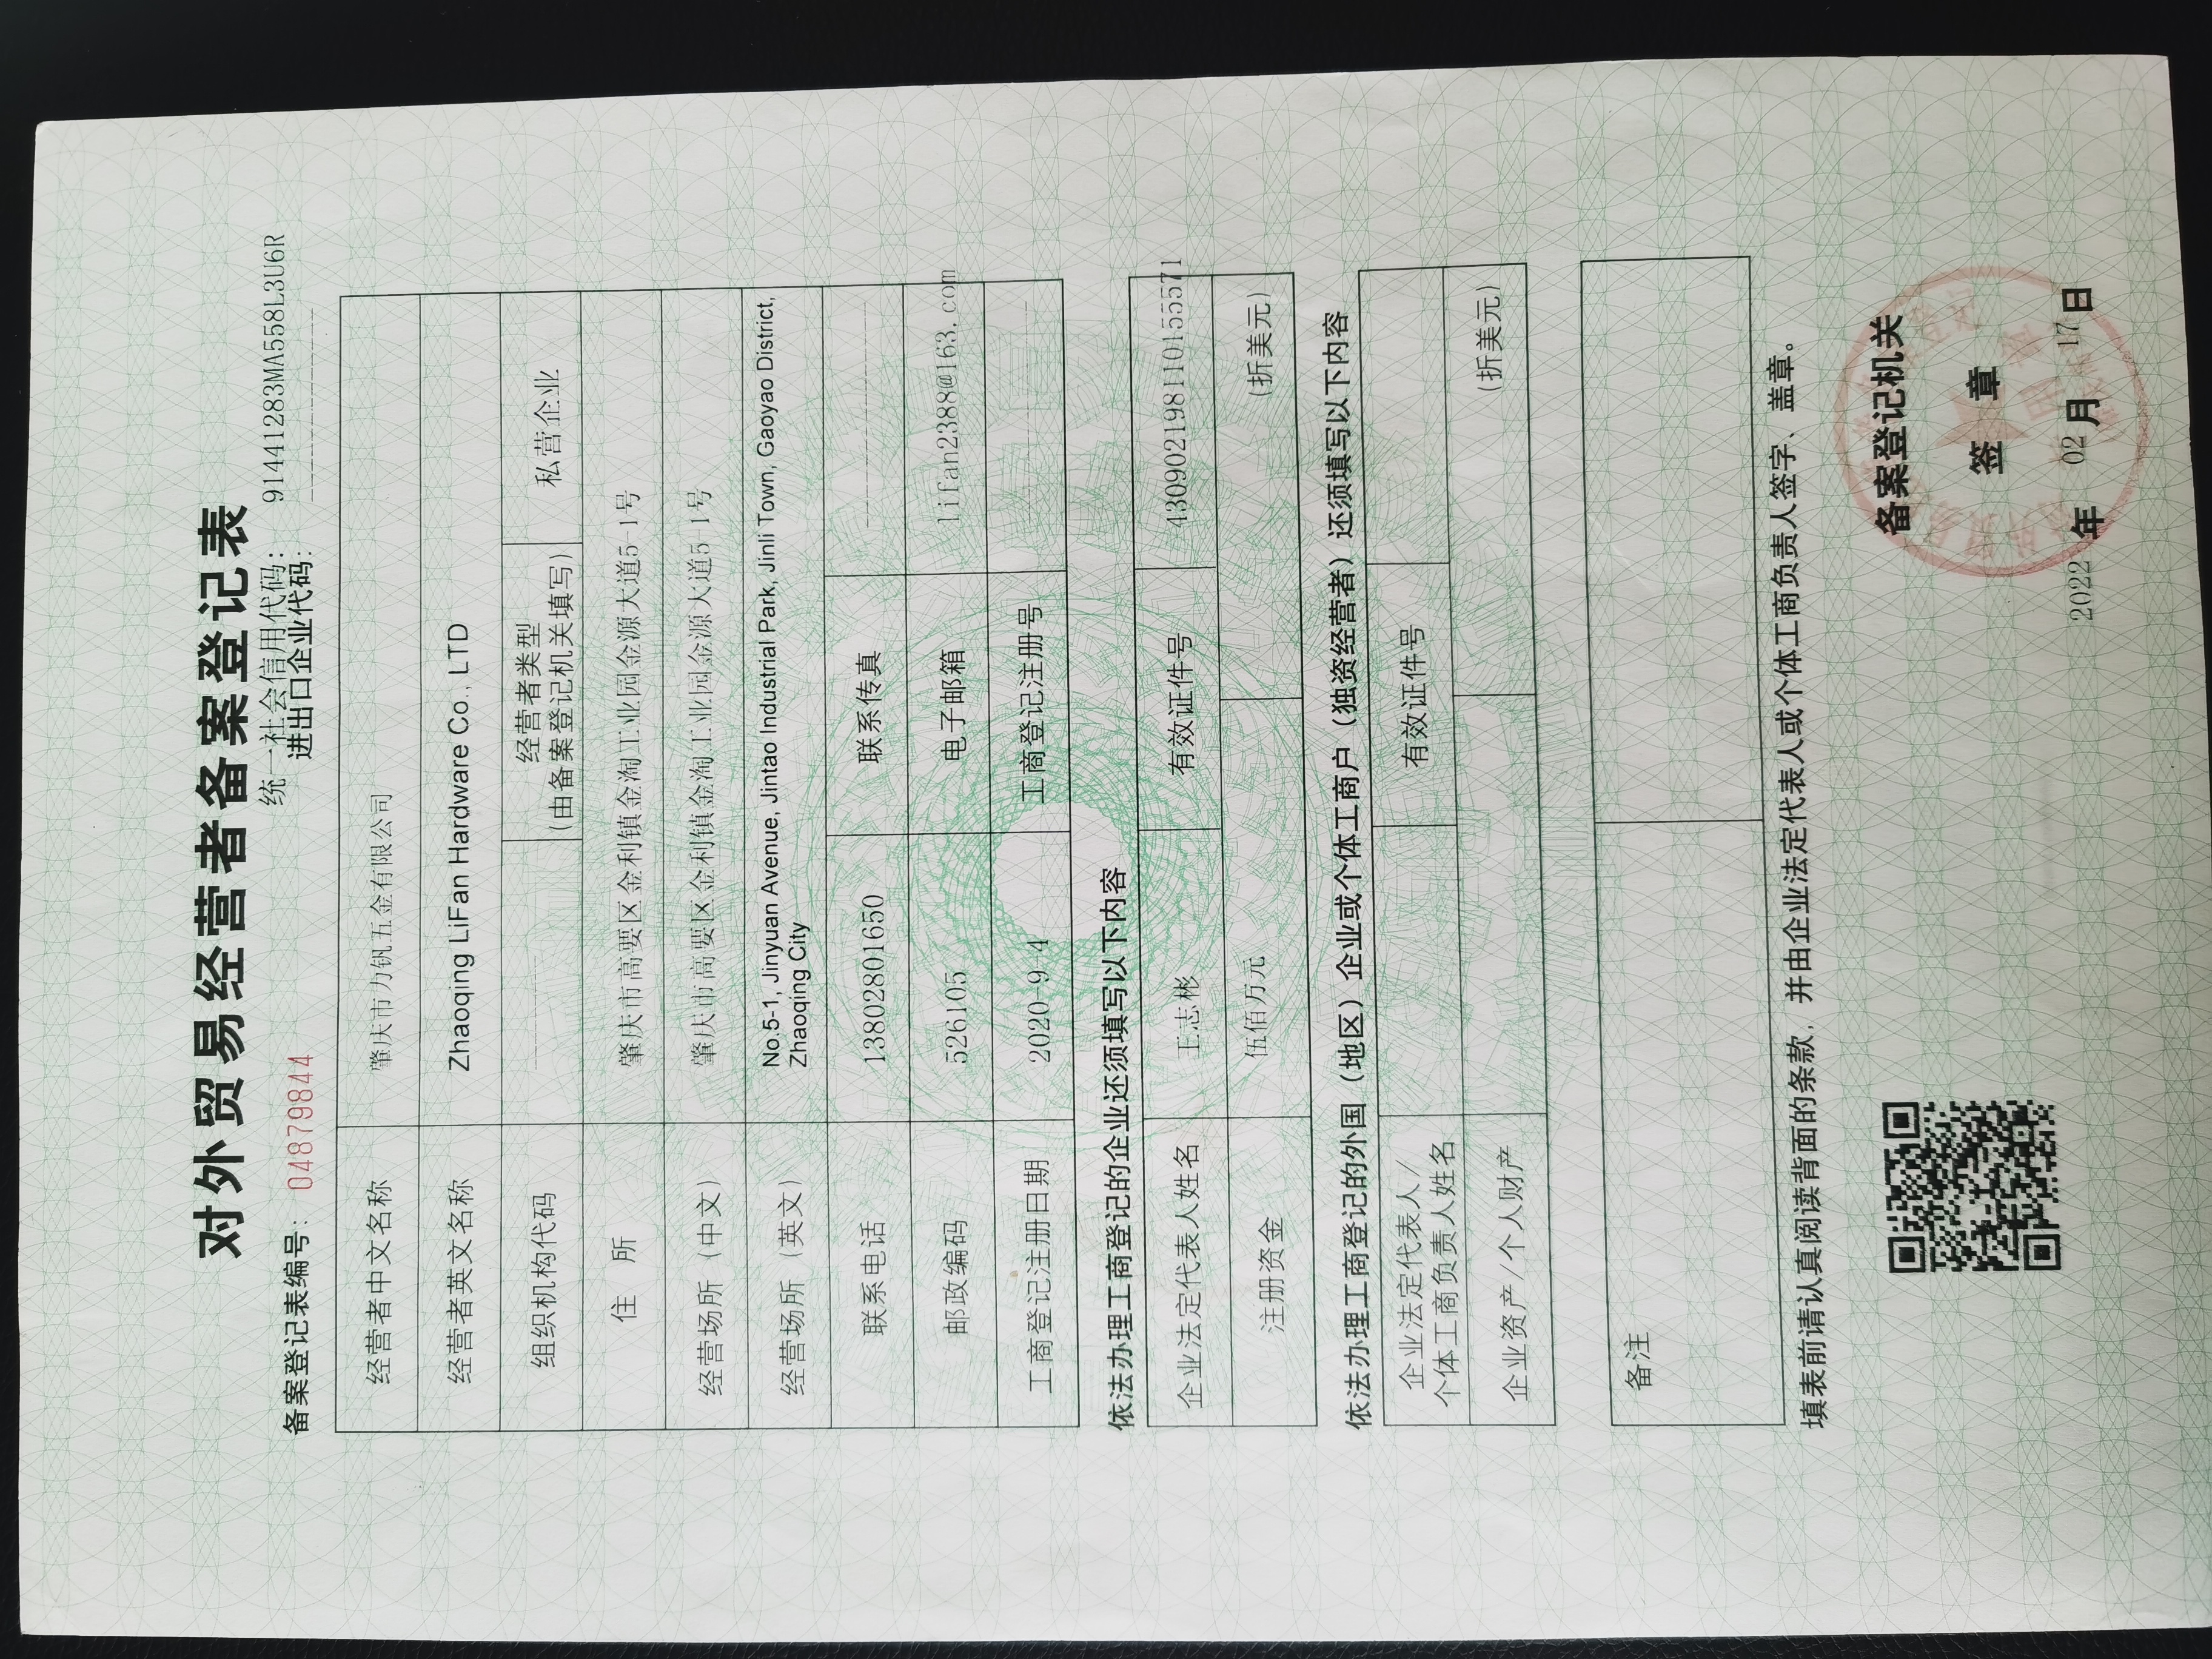 对外贸易经营者备案登记表
统一社会信用代码： 91441283MA558L3U6R
备案登记表编号： 04879844 进出口企业代码：
经营者中文名称 肇庆市力钒五金有限公司
经营者英文名称 Zhaoqing LiFan Hardware Co., LTD
组织机构代码 经营者类型 私营企业
(由备案登记机关填写)
住 所 肇庆市高要区金利镇金淘工业园金源大道5-1号
经营场所（中文） 肇庆市高要区金利镇金淘工业园金源大道5-1号
经营场所（英文） No.5-1, Jinyuan Avenue, Jintao Industrial Park, Jinli Town, Gaoyao District,
Zhaoqing City
联系电话 13802801650 联系传真
邮政编码 526105 电子邮箱 lifan2388@163.com
工商登记注册日期 2020-9-4 工商登记注册号
依法办理工商登记的企业还须填写以下内容
企业法定代表人姓名 王志彬 有效证件号 430902198110155571
注册资金 伍佰万元 (折美元)
依法办理工商登记的外国（地区）企业或个体工商户（独资经营者）还须填写以下内容
企业法定代表人/
个体工商负责人姓名 有效证件号
企业资产/个人财产 (折美元)
备注
填表前请认真阅读背面的条款，并由企业法定代表人或个体工商负责人签字、盖章。
备案登记机关
签 章
2022 年 02 月 17 日